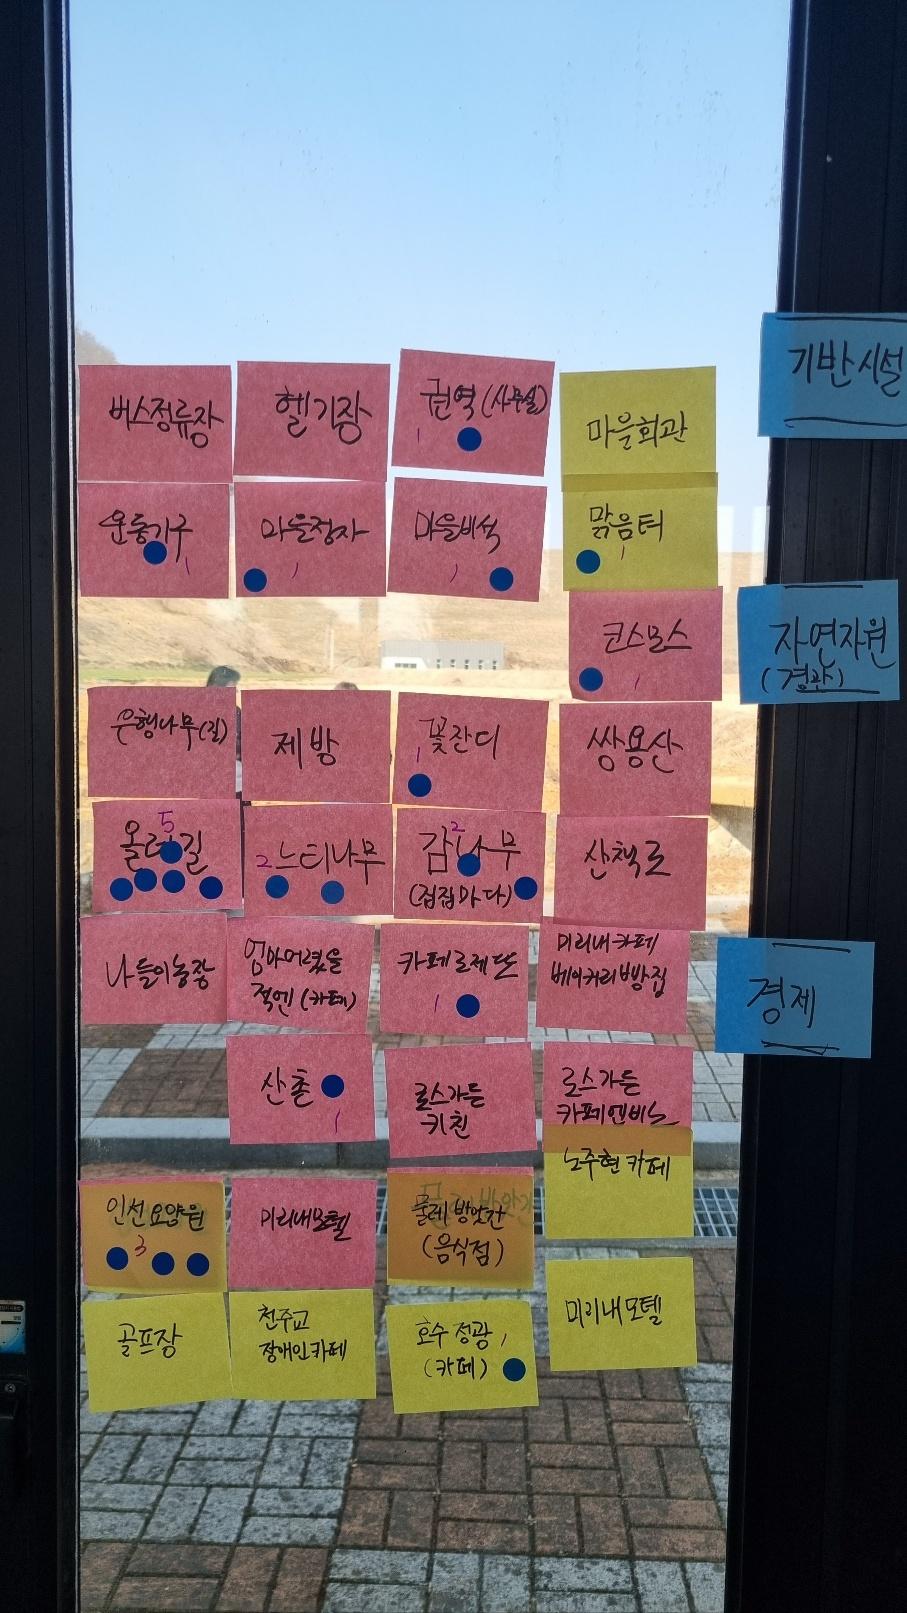 기반시설
버스정류장
헬기장
권역(사무실)
1
마을회관
운동기구
1
마을정자
1
마을비석
1
맑음터
1
자연자원
(경관)
코스모스
1
은행나무(길)
제방
꽃잔디
1
쌍용산
올레길
5
느티나무
2
감나무
2
(집집마다)
산책로
경제
나들이농장
엄마어렸을
적엔(카페)
카페르제단
1
미리내카페
베이커리빵집
산촌
1
로스가든
키친
로스가든
카페엔비노
노주현카페
인선요양원
3
미리내모텔
물레방앗간
(음식점)
골프장
천주교
장애인카페
호수정광
1
(카페)
미리내모텔